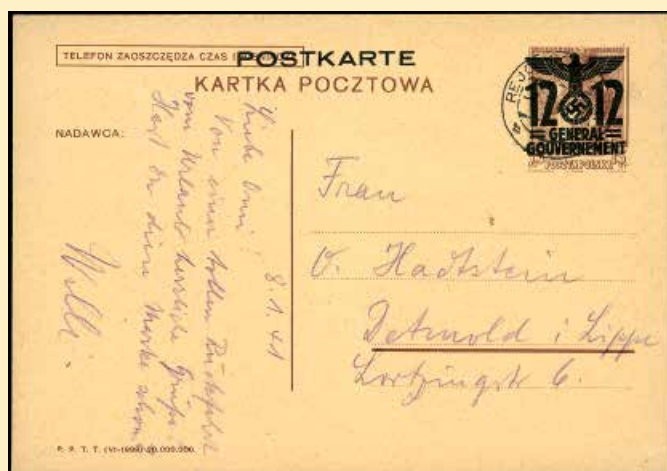 TELEFON ZAOSZCZĘDZA CZAS I
POSTKARTE
KARTKA POCZTOWA
12 12
GENERAL=
GOUVERNEMENT
POCZTA POLSKA
NADAWCA:
8.1.41
Von einer tollen Rückfahrt
vom Urlaub herzliche Grüße.
Hast Du diese Marke schon?
Willi.
Frau
v. Hadtstein
Detmold i Lippe
Lortzingstr 6.
P. P. T. T. (VI-1939) 20.000.000.